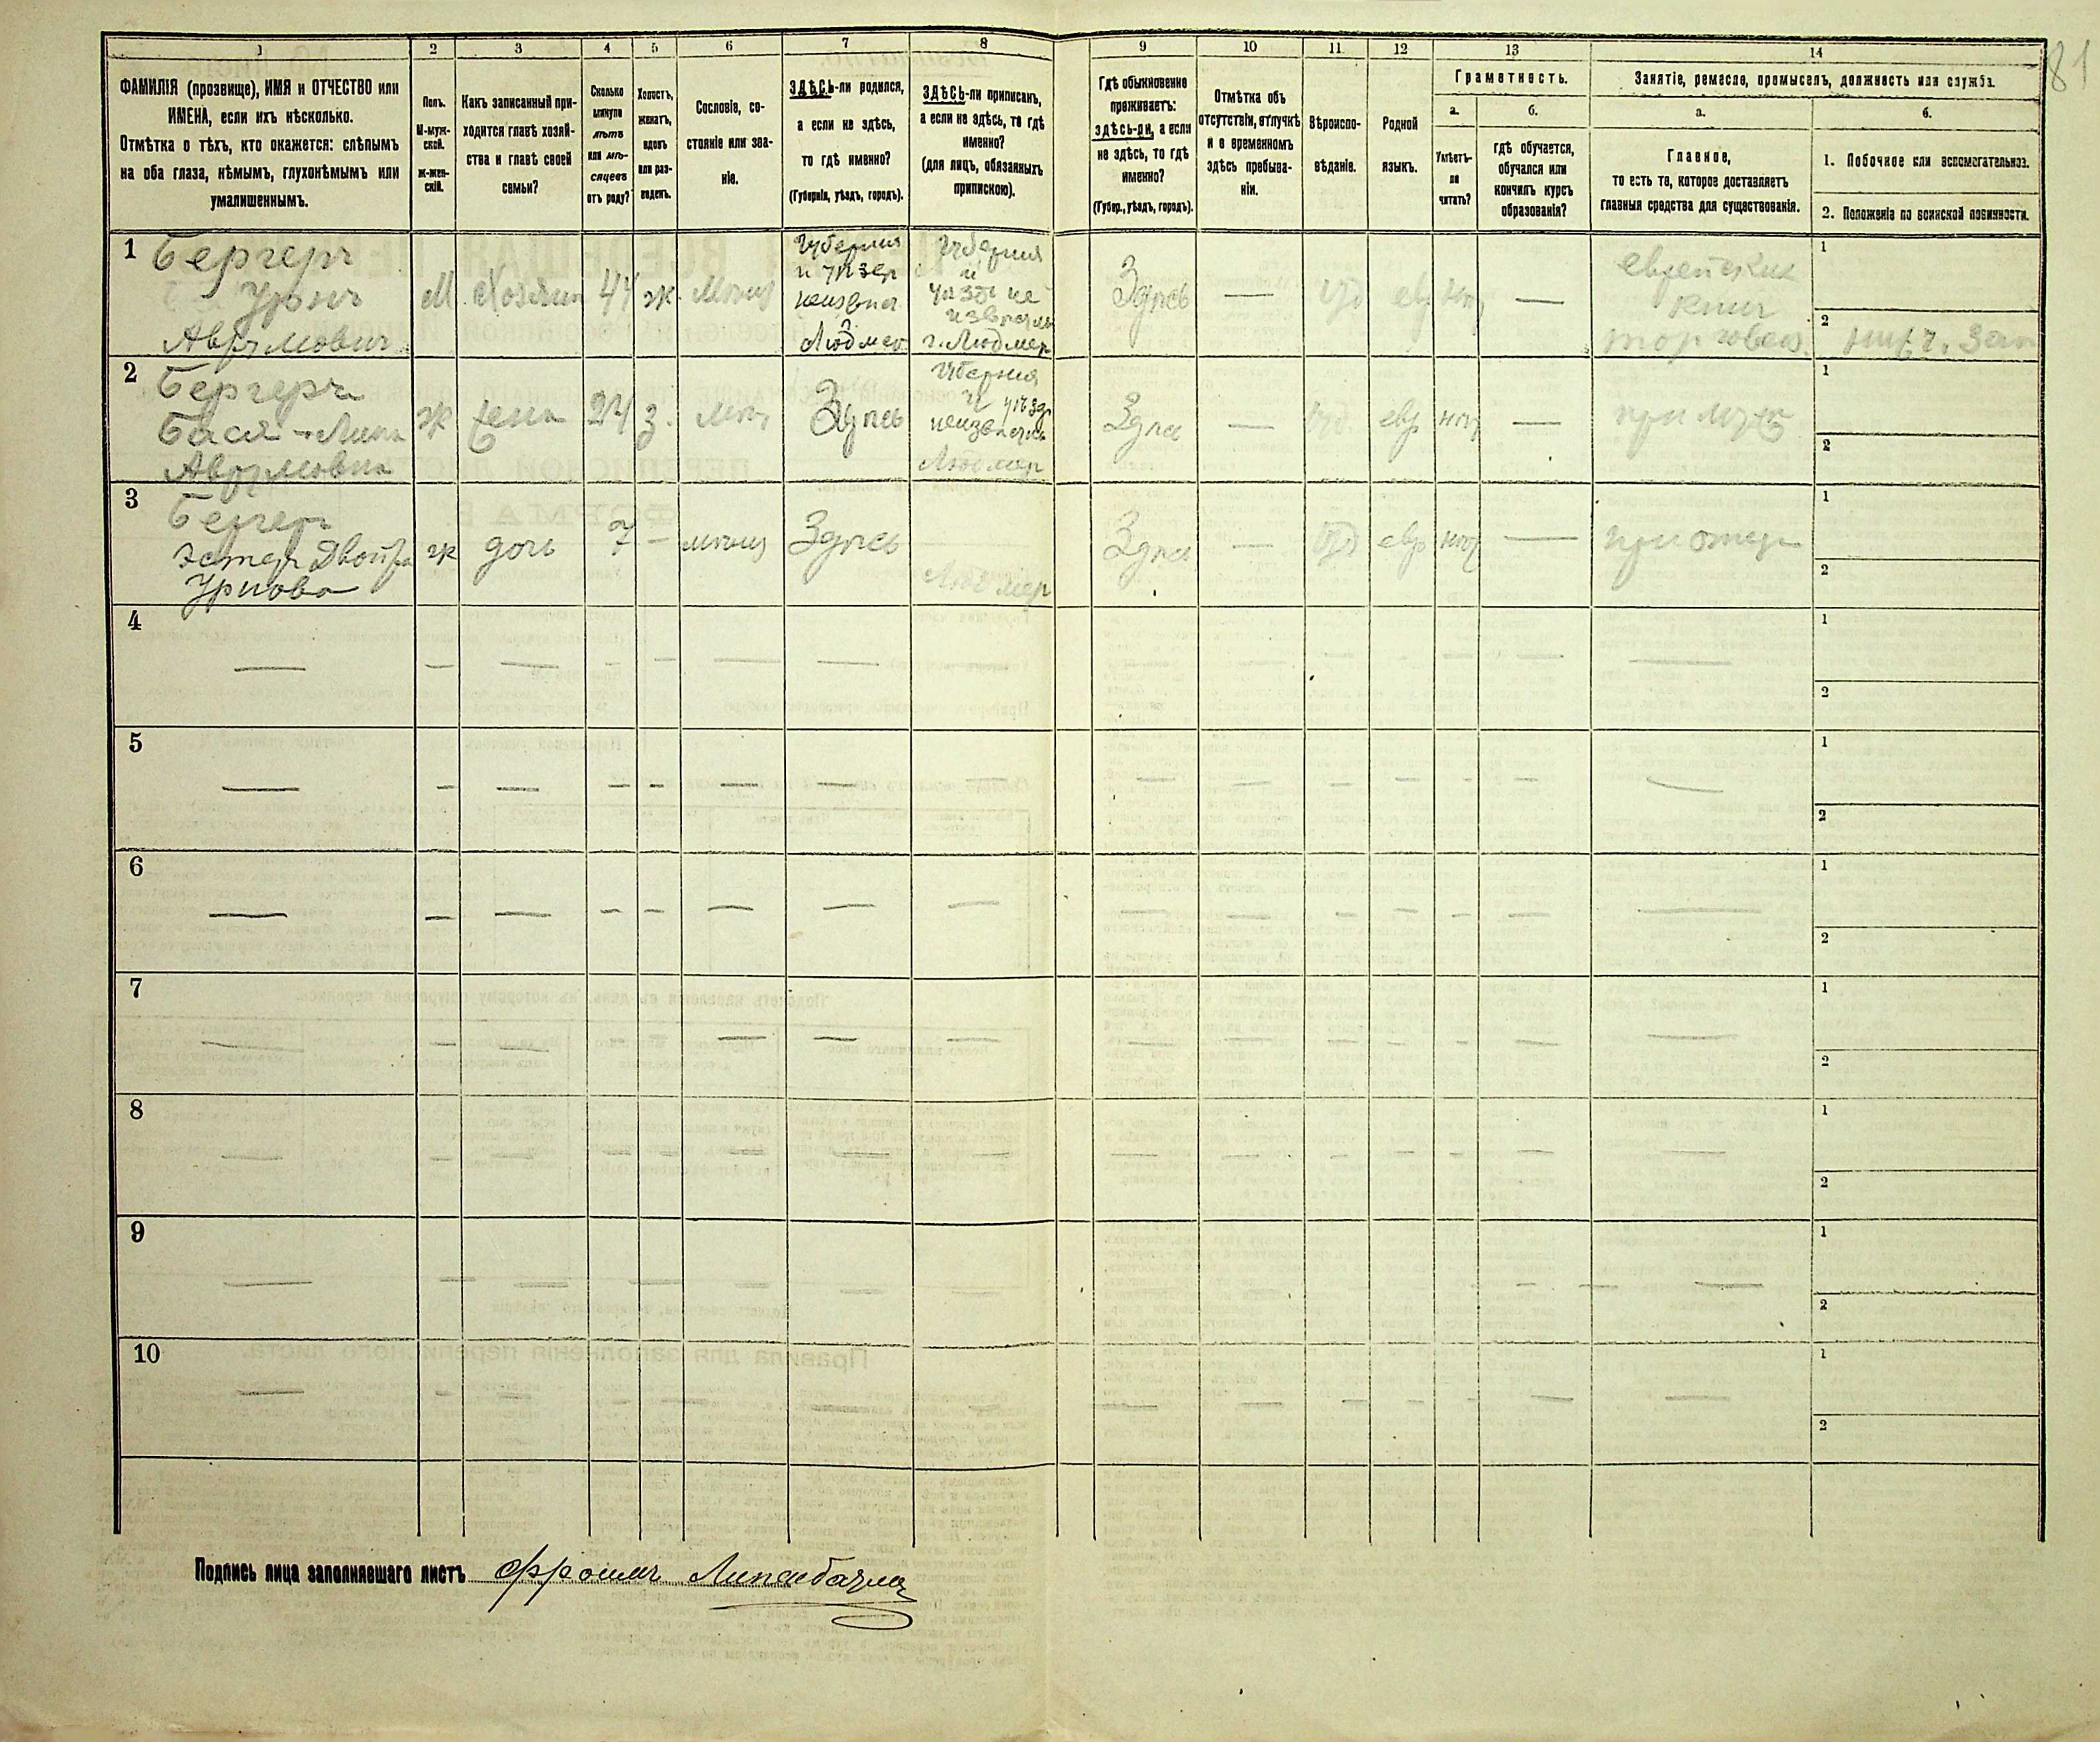 81
1 2 3 4 5 6 7 8 9 10 11 12 13 14
ФАМИЛІЯ (прозвище), ИМЯ и ОТЧЕСТВО или
ИМЕНА, если ихъ нѣсколько.
Отмѣтка о тѣхъ, кто окажется: слѣпымъ
на оба глаза, нѣмымъ, глухонѣмымъ или
умалишеннымъ.
Полъ.
М-муж-
ской.
ж-жен-
скій.
Какъ записанный при-
ходится главѣ хозяй-
ства и главѣ своей
семьи?
Сколько
минуло
лѣтъ
или мѣ-
сяцевъ
отъ роду?
Холостъ,
женатъ,
вдовъ
или раз-
веденъ.
Сословіе, со-
стояніе или зва-
ніе.
ЗДѢСЬ-ли родился,
а если не здѣсь,
то гдѣ именно?
(Губернія, уѣздъ, городъ).
ЗДѢСЬ-ли приписанъ,
а если не здѣсь, то гдѣ
именно?
(для лицъ, обязанныхъ
припискою).
Гдѣ обыкновенно
проживаетъ:
здѣсь-ли, а если
не здѣсь, то гдѣ
именно?
(Губер., уѣздъ, городъ).
Отмѣтка объ
отсутствіи, отлучкѣ
и о временномъ
здѣсь пребыва-
ніи.
Вѣроиспо-
вѣданіе.
Родной
языкъ.
Грамотность.
а.
Умѣетъ-
ли
читать?
б.
гдѣ обучается,
обучался или
кончилъ курсъ
образованія?
Занятіе, ремесло, промыселъ, должность или служба.
а.
Главное,
то есть то, которое доставляетъ
главныя средства для существованія.
б.
1. Побочное или вспомогательное.
2. Положеніе по воинской повинности.
1
Бергеръ
Урнъ
Аврумовичъ
М
Хозяинъ
44
ж
Губернія
и уѣздъ
г. Людмер
Здѣсь
евр
еврейских
книг
торговец
1
2
2
Бергеръ
Бася-Лика
Аврумовна
ж
жена
24
з.
Здѣсь
Губернія
и уѣзд
Людмер
Здѣсь
евр
при мужѣ
1
2
3
Бергер
Эстер Двойра
Урнова
ж
дочь
7
Здѣсь
Людмер
Здѣсь
евр
при отцѣ
1
2
4
1
2
5
1
2
6
1
2
7
1
2
8
1
2
9
1
2
10
1
2
Подпись лица заполнявшаго листъ